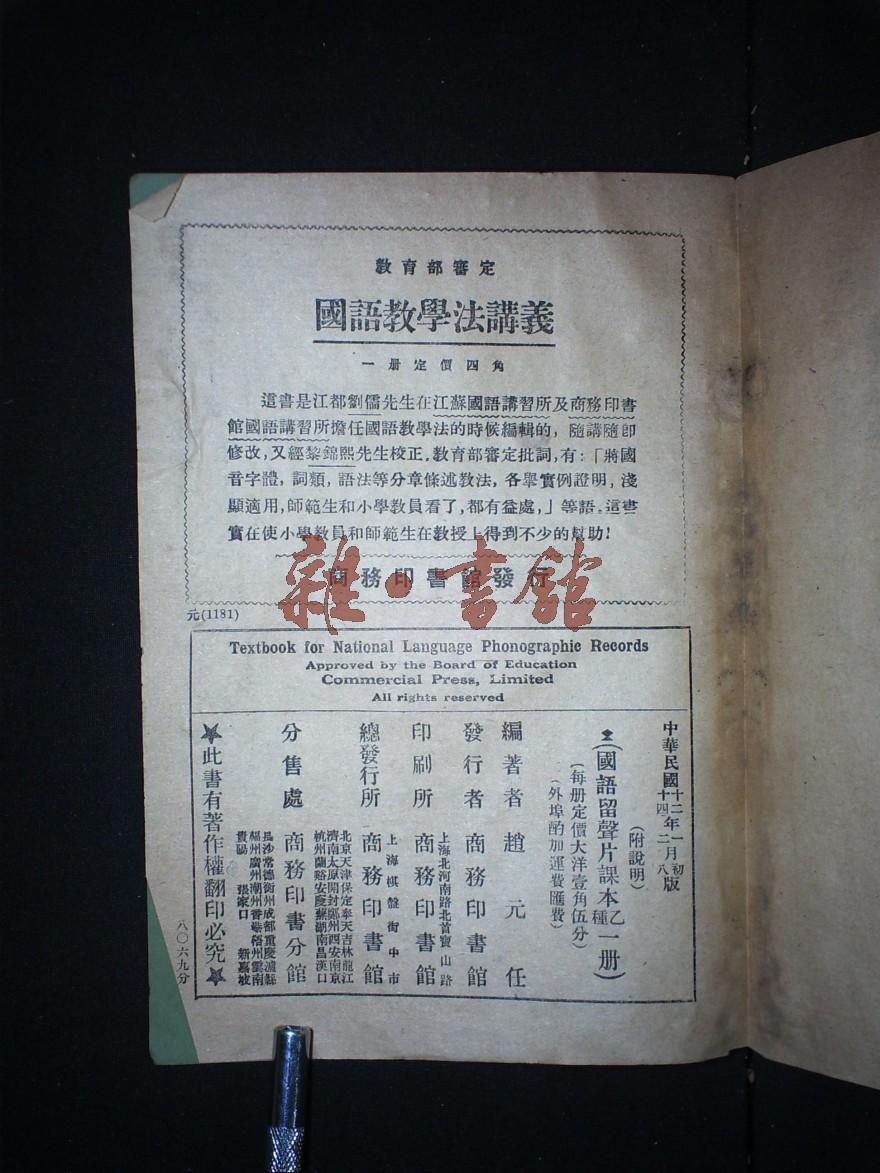 教育部審定
國語教學法講義
一册定價四角
這書是江都劉儒先生在江蘇國語講習所及商務印書
館國語講習所擔任國語教學法的時候編輯的，隨講隨卽
修改，又經黎錦熙先生校正。教育部審定批詞，有：「將國
音字體，詞類，語法等分章條述教法，各舉實例證明，淺
顯適用，師範生和小學教員看了，都有益處，」等語。這書
實在使小學教員和師範生在教授上得到不少的幫助！
商務印書館發行
雜·書館
元(1181)
Textbook for National Language Phonographic Records
Approved by the Board of Education
Commercial Press, Limited
All rights reserved
中華民國十二年一月初版
十四 二 八
(附說明)
(國語留聲片課本乙種一册)
(每册定價大洋壹角伍分)
(外埠酌加運費匯費)
編著者 趙元任
發行者 商務印書館
上海北河南路北首寶山路
印刷所 商務印書館
上海棋盤街中市
總發行所 商務印書館
北京天津保定奉天吉林龍江
濟南太原開封鄭州西安南京
杭州蘭谿安慶蕪湖南昌漢口
分售處 商務印書分館
長沙常德衡州成都重慶瀘縣
福州廣州潮州香港梧州雲南
貴陽 張家口 新嘉坡
★此書有著作權翻印必究★
八〇六九分